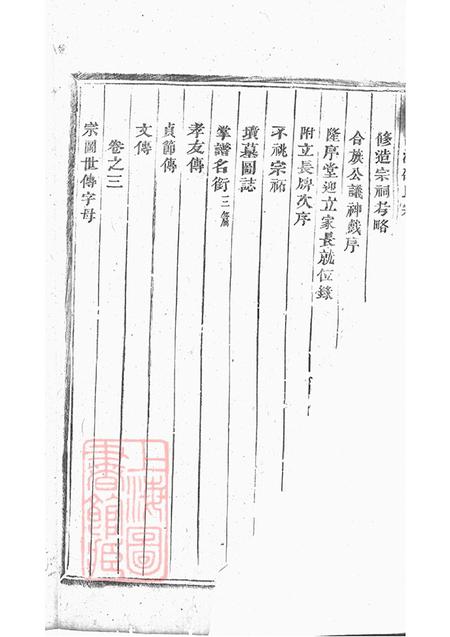 修造宗祠考略
合族公議神戤序
隆序堂迎立家長就位錄
附立長房次序
不祧宗祐
墳墓圖誌
掌譜名銜三篇
孝友傳
貞節傳
文傳
卷之三
宗圖世傳字母
上海圖書館藏